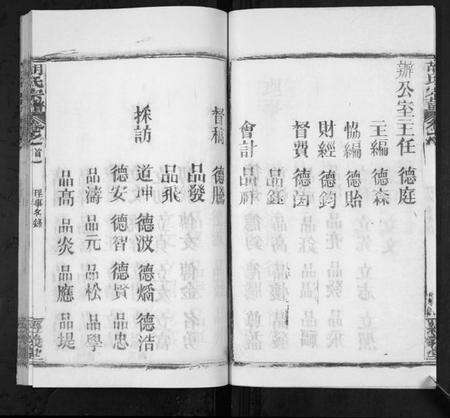 辦公室主任 德庭
主編 德森
協編 德貽
財經 德鈞
督費 德茵
品鈺
會計 品祥
督稿 德騰
品發
品飛
採訪 道坤 德波 德燏 德浩
德安 德智 德賢 品忠
品濤 品元 品松 品學
品高 品炎 品應 品堤
理事名錄
胡氏宗譜 卷之首